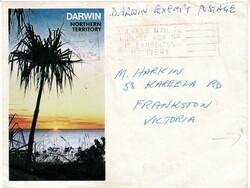 DARWIN EXEMPT POSTAGE
DARWIN
NORTHERN
TERRITORY
M. HARKIN
58 KAREELA RD
FRANKSTON
VICTORIA